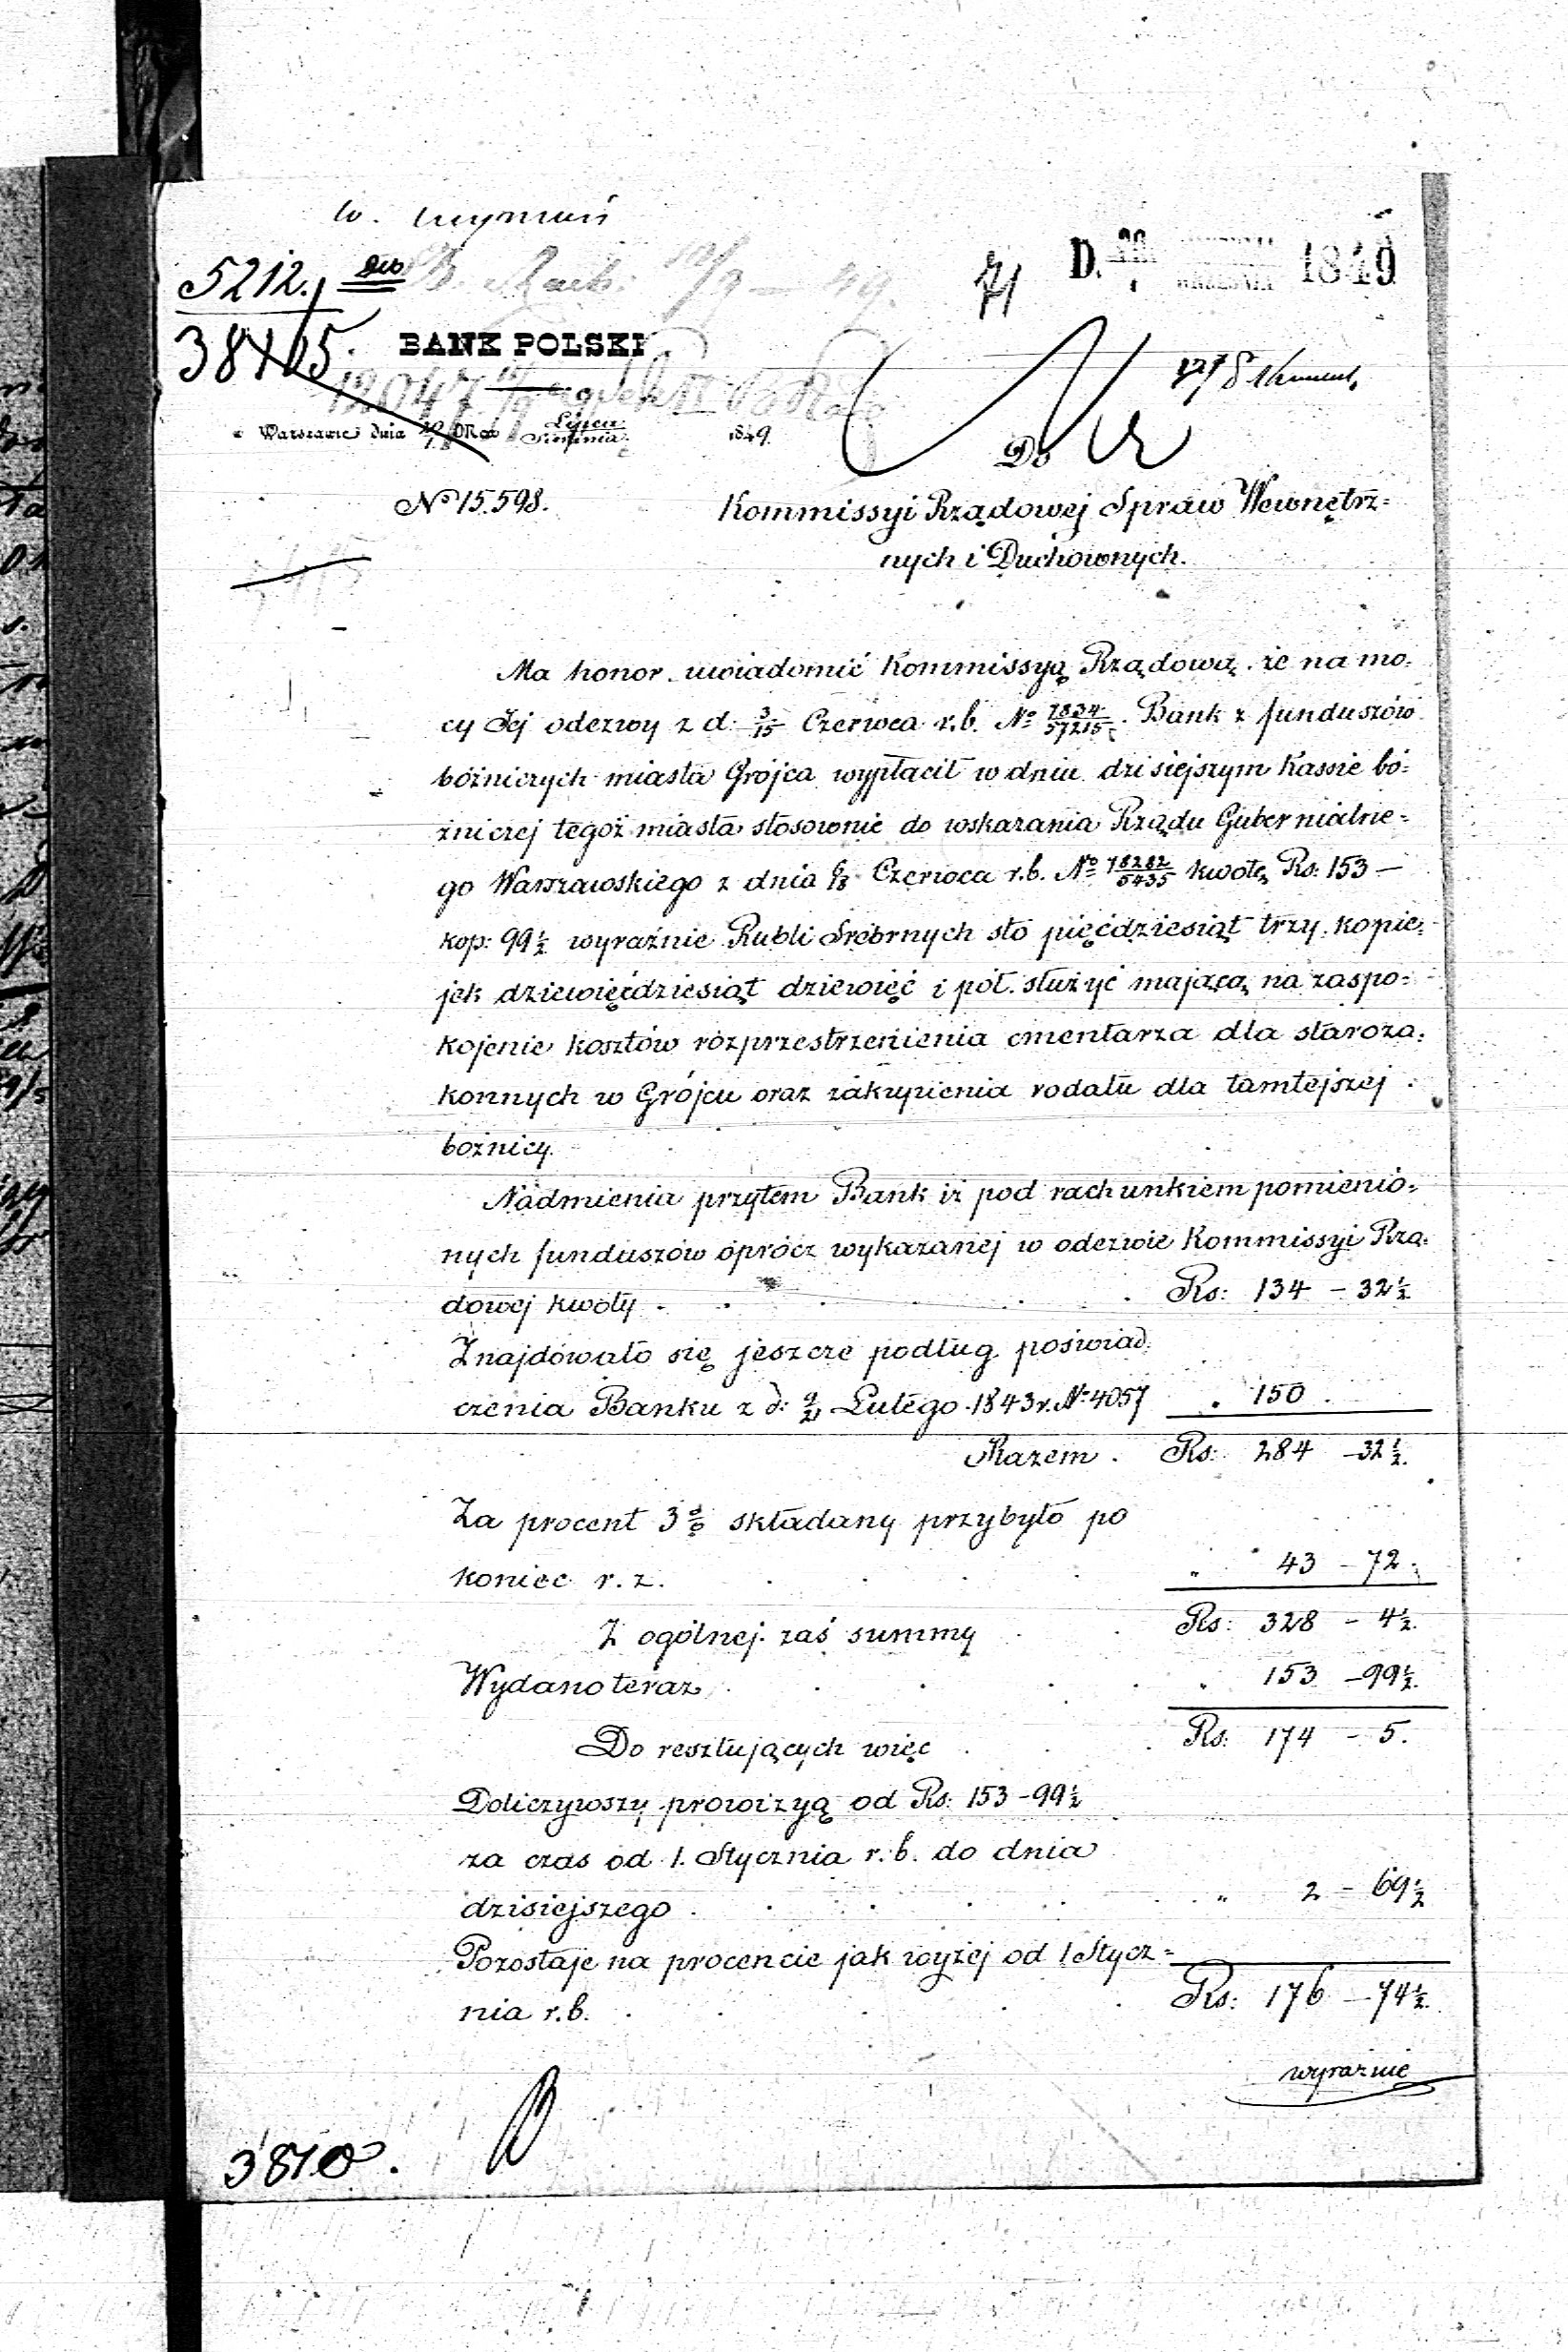 5212.
D. 1849
71
38405.
BANK POLSKI.
w Warszawie dnia Lipca Sierpnia 1849.
Do
No 15.598.
Kommissyi Rządowej Spraw Wewnętrz=
nych i Duchownych.
Ma honor uwiadomić Kommissyą Rządową, że na mo=
cy Jej odezwy z d. 3/15 Czerwca r.b. No 7834/37215. Bank z funduszów
bóżniczych miasta Grójca wypłacił w dniu dzisiejszym Kassie bó=
żniczej tegoż miasta stosownie do wskazania Rządu Gubernialne=
go Warszawskiego z dnia Czerwca r.b. No 78282/5435 kwotę Rs: 153 –
kop: 99½ wyraźnie Rubli Srebrnych sto pięćdziesiąt trzy, kopie=
jek dziewięćdziesiąt dziewięć i pół, służyć mającą na zaspo=
kojenie kosztów rozprzestrzenienia cmentarza dla staroza=
konnych w Grójcu oraz zakupienia rodału dla tamtejszej
bożnicy.
Nadmienia przytem Bank iż pod rachunkiem pomienio=
nych funduszów oprócz wykazanej w odezwie Kommissyi Rzą=
dowej kwoty . Rs: 134 – 32½
Znajdowało się jeszcze podług poświad=
czenia Banku z d: 9/21 Lutego 1843 r. No 4057 „ 150 .
Razem . Rs: 284 – 32½.
Za procent 3% składany przybyło po
koniec r. z. „ 43 – 72.
Z ogólnej zaś summy Rs: 328 – 4½.
Wydano teraz . „ 153 – 99½.
Do resztujących więc . Rs: 174 – 5.
Doliczywszy prowizyą od Rs: 153 – 99½
za czas od 1. Stycznia r. b. do dnia
dzisiejszego . „ 2 – 69½
Pozostaje na procencie jak wyżej od 1 Stycz=
nia r. b. Rs: 176 – 74½.
wyraźnie
3870.